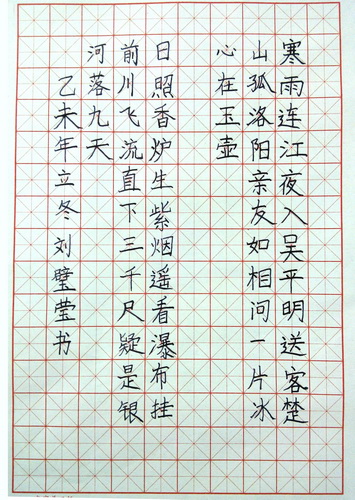 寒雨连江夜入吴平明送客楚
山孤洛阳亲友如相问一片冰
心在玉壶
日照香炉生紫烟遥看瀑布挂
前川飞流直下三千尺疑是银
河落九天
乙未年立冬刘璧莹书